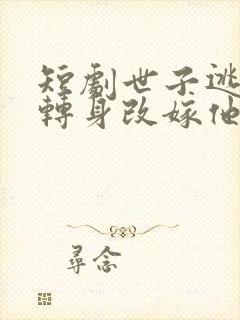 短劇世子逃
轉身改嫁他
尋念